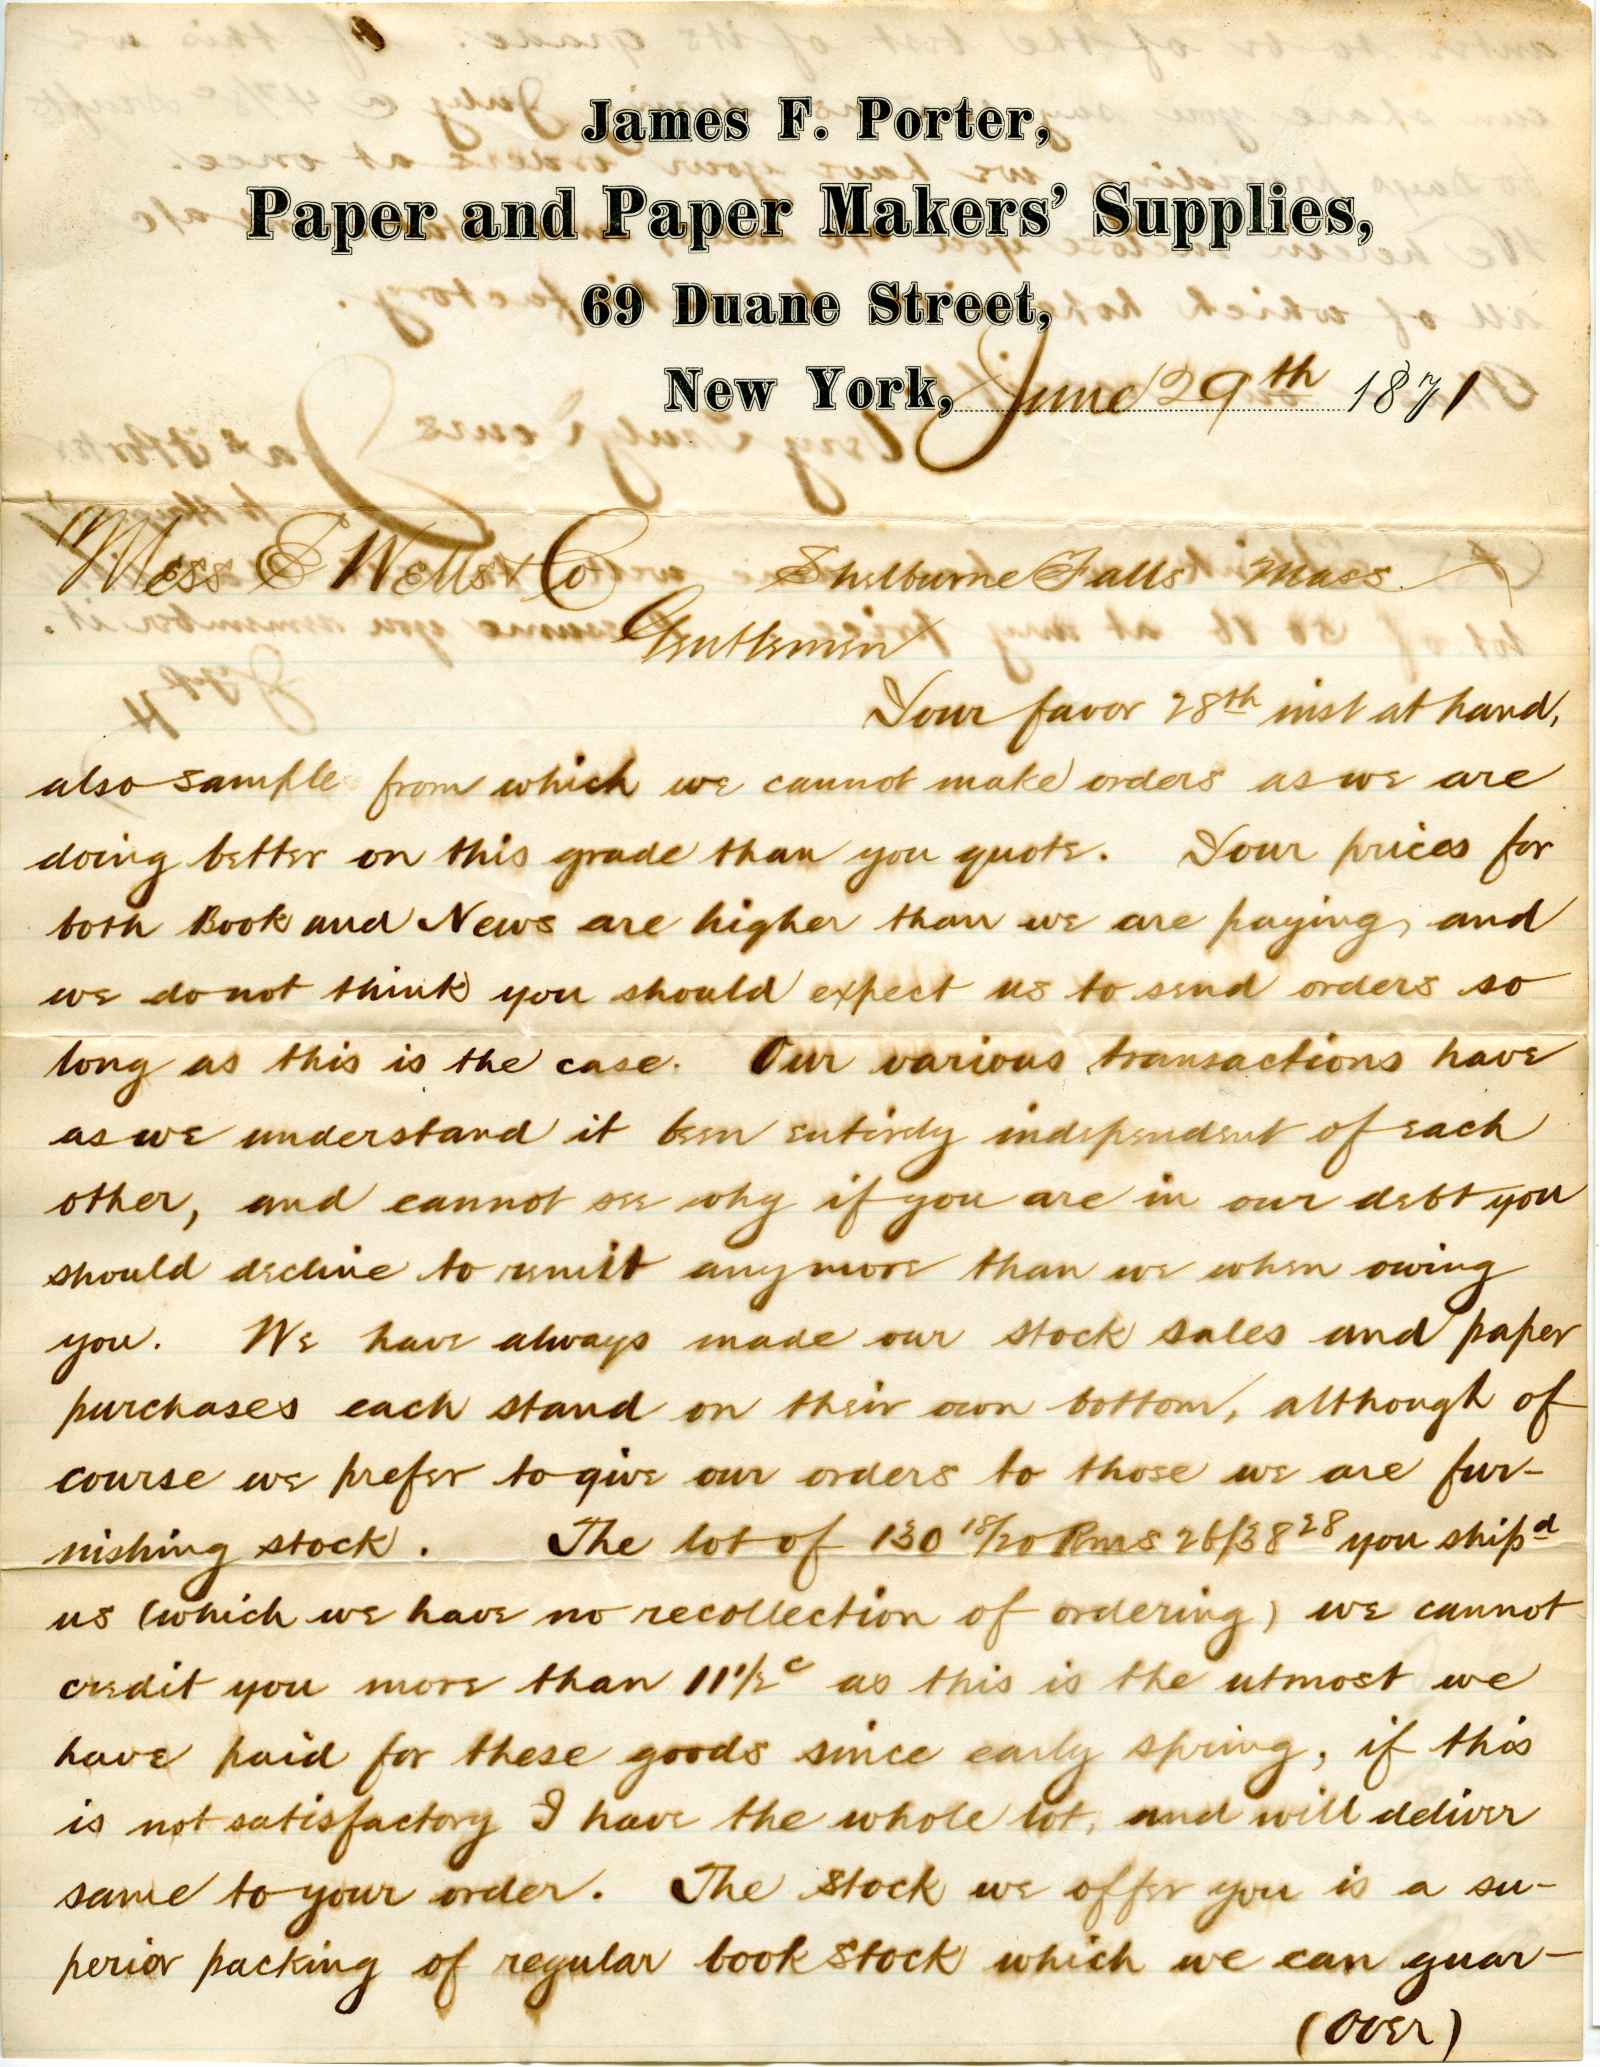 James F. Porter,
Paper and Paper Makers' Supplies,
69 Duane Street,
New York, June 29th 1871
Mess E Wells & Co Shelburne Falls Mass.
Gentlemen
Your favor 28th inst at hand,
also sample from which we cannot make orders as we are
doing better on this grade than you quote. Your prices for
both Book and News are higher than we are paying, and
we do not think you should expect us to send orders so
long as this is the case. Our various transactions have
as we understand it been entirely independent of each
other, and cannot see why if you are in our debt you
should decline to remit anymore than we when owing
you. We have always made our stock sales and paper
purchases each stand on their own bottom, although of
course we prefer to give our orders to those we are fur-
nishing stock. The lot of 130 18/20 Rms 26/38 28 you shipd
us (which we have no recollection of ordering) we cannot
credit you more than 11 1/2c as this is the utmost we
have paid for these goods since early spring, if this
is not satisfactory I have the whole lot, and will deliver
same to your order. The stock we offer you is a su-
perior packing of regular book stock which we can guar-
(over)